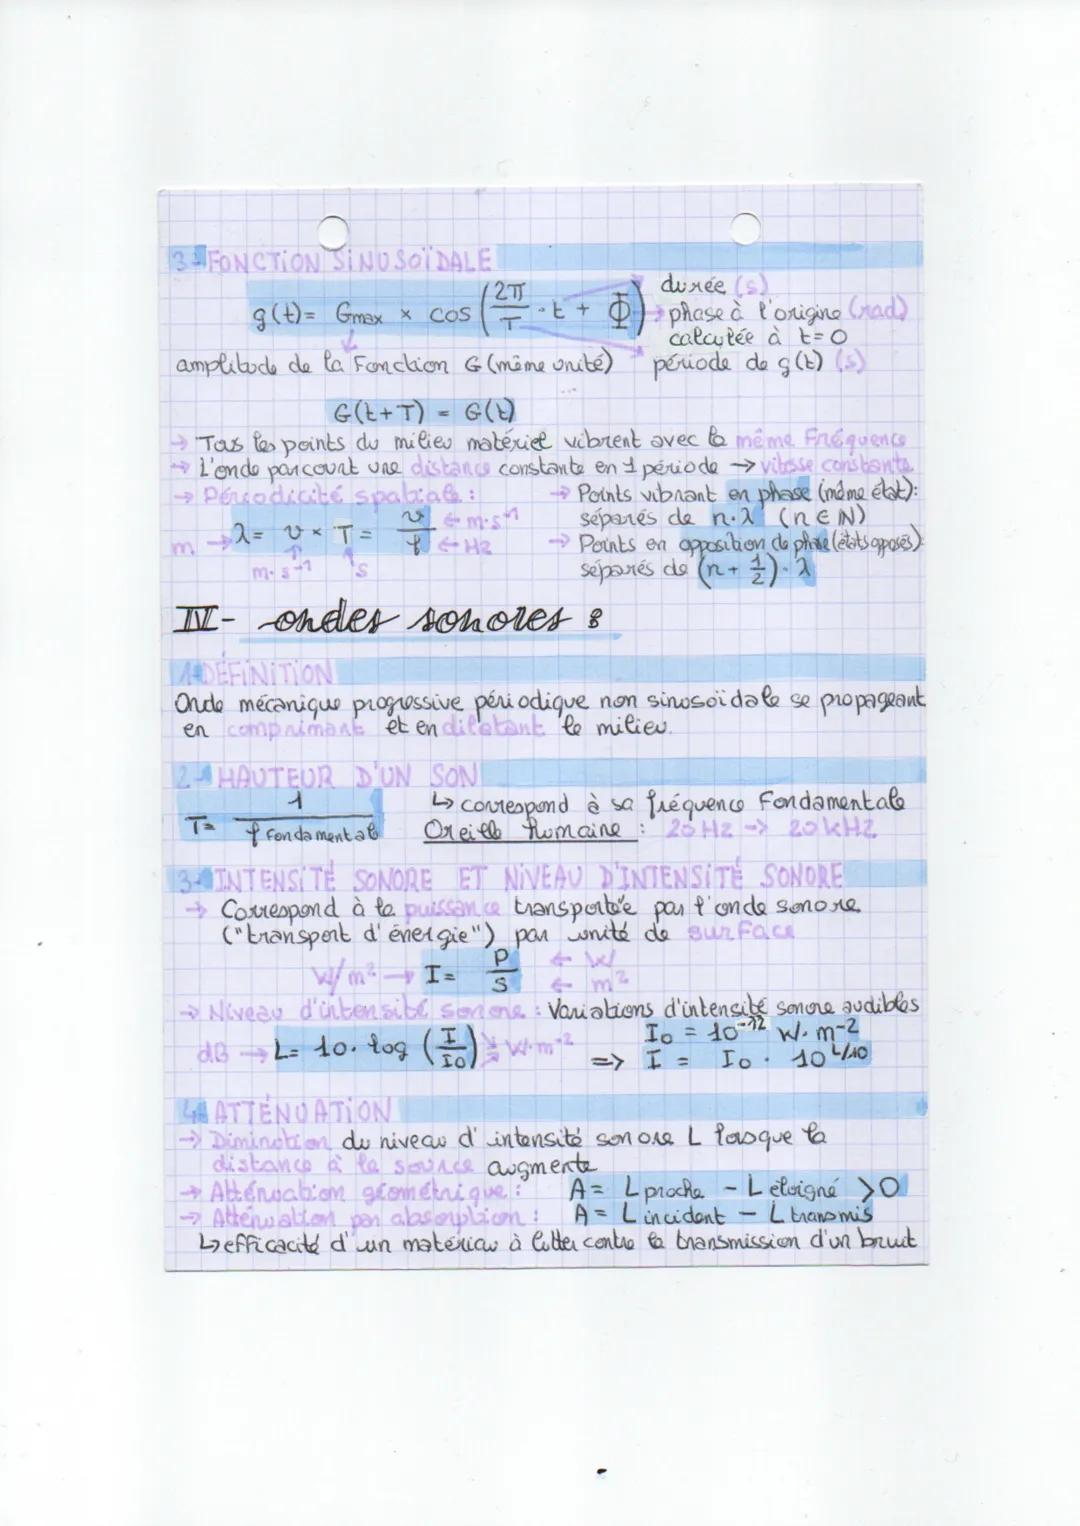 3- FONCTION SINUSOÏDALE
g(t)= Gmax × cos (2π/T · t + Φ)
durée (s)
phase à l'origine (rad)
calculée à t=0
amplitude de la Fonction G (même unité)
période de g(t) (s)
G(t+T) = G(t)
→ Tous les points du milieu matériel vibrent avec la même Fréquence
→ L'onde parcourt une distance constante en 1 période → vitesse constante
→ Périodicité spatiale :
m → λ= v × T = v/f ← m·s⁻¹ ← Hz
m·s⁻¹ s
→ Points vibrant en phase (même état):
séparés de n·λ (n ∈ N)
→ Points en opposition de phase (états opposés):
séparés de (n + 1/2)·λ
IV- ondes sonores :
1- DÉFINITION
Onde mécanique progressive périodique non sinusoïdale se propageant
en comprimant et en dilatant le milieu.
2- HAUTEUR D'UN SON
T= 1/f fondamental
↳ correspond à sa fréquence Fondamentale
Oreille humaine : 20 Hz → 20 kHz
3- INTENSITÉ SONORE ET NIVEAU D'INTENSITÉ SONORE
→ Correspond à la puissance transportée par l'onde sonore
("transport d'énergie") par unité de surface
W/m² → I= P/S ← W ← m²
→ Niveau d'intensité sonore : Variations d'intensité sonore audibles
dB → L= 10. log (I/I0) W·m⁻²
I0 = 10⁻¹² W. m-2
=> I = I0 . 10^L/10
4- ATTÉNUATION
→ Diminution du niveau d'intensité sonore L lorsque la
distance à la source augmente
→ Atténuation géométrique : A= L proche - L éloigné >0
→ Atténuation par absorption : A= L incident - L transmis
↳ efficacité d'un matériau à lutter contre la transmission d'un bruit